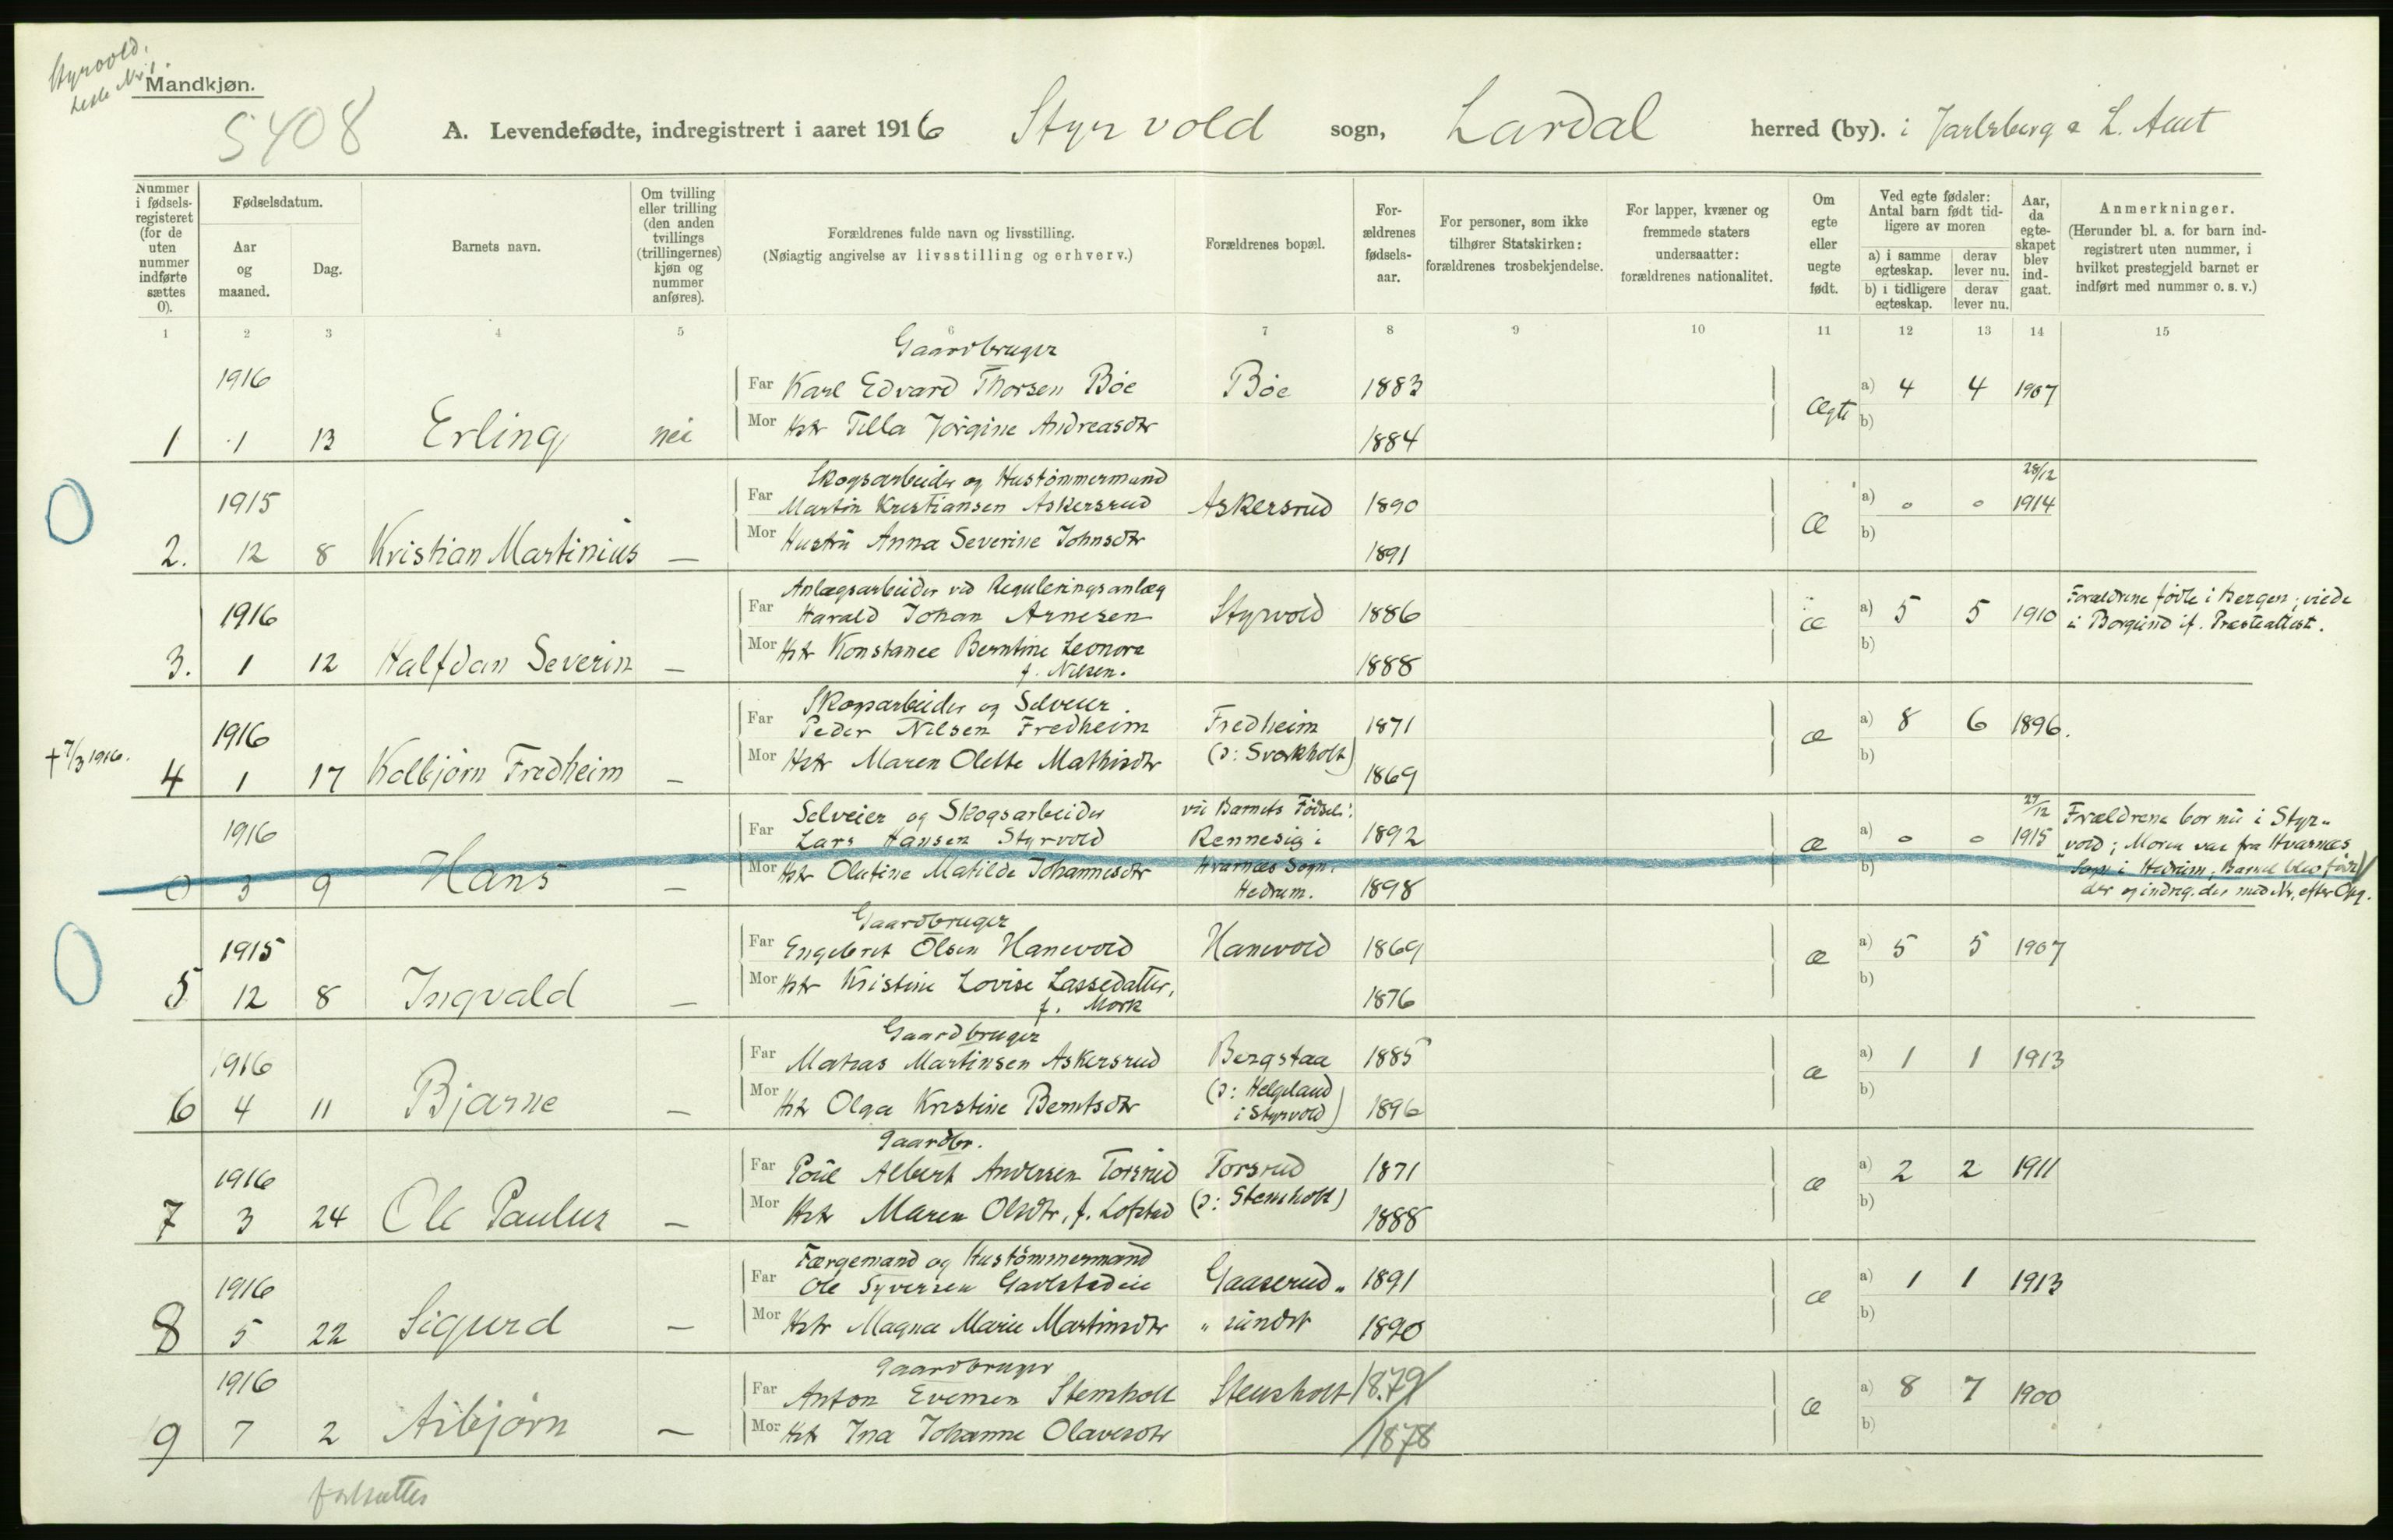 Styrvold.
Liste Nr. 1.
Mandkjøn.
5408
A. Levendefødte, indregistrert i aaret 1916 Styrvold sogn, Lardal herred (by). i Jarlsberg & L. Amt
Nummer i fødsels-registeret (for de uten nummer indførte sættes 0).
Fødselsdatum.
Aar og maaned.
Dag.
Barnets navn.
Om tvilling eller trilling (den anden tvillings (trillingernes) kjøn og nummer anføres).
Forældrenes fulde navn og livsstilling.
(Nøiagtig angivelse av livsstilling og erhverv.)
Forældrenes bopæl.
For-ældrenes fødsels-aar.
For personer, som ikke tilhører Statskirken: forældrenes trosbekjendelse.
For lapper, kvæner og fremmede staters undersaatter: forældrenes nationalitet.
Om egte eller uegte født.
Ved egte fødsler: Antal barn født tid-ligere av moren
a) i samme egteskap. derav lever nu.
b) i tidligere egteskap. derav lever nu.
Aar, da egte-skapet blev ind-gaat.
Anmerkninger.
(Herunder bl. a. for barn ind-registrert uten nummer, i hvilket prestegjeld barnet er indført med nummer o. s. v.)
1 2 3 4 5 6 7 8 9 10 11 12 13 14 15
Gaardbruger
1916 Far Karl Edvard Thorsen Bøe Bøe 1883 a) 4 4 1907
1 1 13 Erling nei Mor Hstr Tella Jørgine Andreasdtr 1884 Ægte b)
Skogsarbeider og Hustømmermand 28/12
1915 Far Martin Kristiansen Askersrud Askersrud 1890 a) 0 0 1914
2. 12 8 Kristian Martinius — Mor Hustru Anna Severine Johnsdtr 1891 Æ b)
Anlægsarbeider ved Reguleringsanlæg Forældrene fødte i Bergen; viede
1916 Far Harald Johan Arnesen Styrvold 1886 æ a) 5 5 1910 i Borgund if. Presteattest.
3. 1 12 Halfdan Severin — Mor Hstr Konstance Berntine Leonora 1888 b)
f. Nilsen.
Skogsarbeider og Selveier.
1916 Far Peder Nilsen Fredheim Fredheim 1871 æ a) 8 6 1896.
† 7/3 1916. 4 1 17 Kolbjørn Fredheim — Mor Hstr Maren Olette Mathisdtr (ɔ: Svarkholt) 1869 b)
Selveier og Skogsarbeider ved Barnets Fødsel: 27/12 Forældrene bor nu i Styr-
1916 Far Lars Hansen Styrvold Rennesig i 1892 æ a) 0 0 1915 vold; Moren var fra Hvarnæs
0 3 9 Hans — Mor Hstr Olufine Matilde Johannesdtr Hvarnæs Sogn, b) Sogn i Hedrum, Barnet blev født
Hedrum. 1898 der og indreg. der med Nr. efter Opg.
Gaardbruger
1915 Far Engebret Olsen Hanevold Hanevold 1869 æ a) 5 5 1907
5 12 8 Ingvald — Mor Hstr Kristine Lovise Lassedatter, 1876 b)
f. Mork
Gaardbruger
1916 Far Matias Martinsen Askersrud Bergstaa 1885 æ a) 1 1 1913
6 4 11 Bjarne — Mor Hstr Olga Kristine Berntsdtr (ɔ: Helgeland 1896 b)
i Styrvold)
Gaardbr.
1916 Far Poul Albert Andersen Torsrud Torsrud 1871 æ a) 2 2 1911
7 3 24 Ole Paulus — Mor Hstr Maren Olsdtr, f. Lofstad (ɔ: Stensholt) 1888 b)
Færgemand og Hustømmermand
1916 Far Ole Syversen Gavlstadeie Gaaserud- 1891 æ a) 1 1 1913
8 5 22 Sigurd — Mor Hstr Magna Marie Martinsdtr " sundet 1890 b)
Gaardbruger
1916 Far Anton Evensen Stensholt Stensholt 1879 æ a) 8 7 1900
9 7 2 Asbjørn — Mor Hstr Ina Johanne Olavesdtr 1878 b)
fortsættes